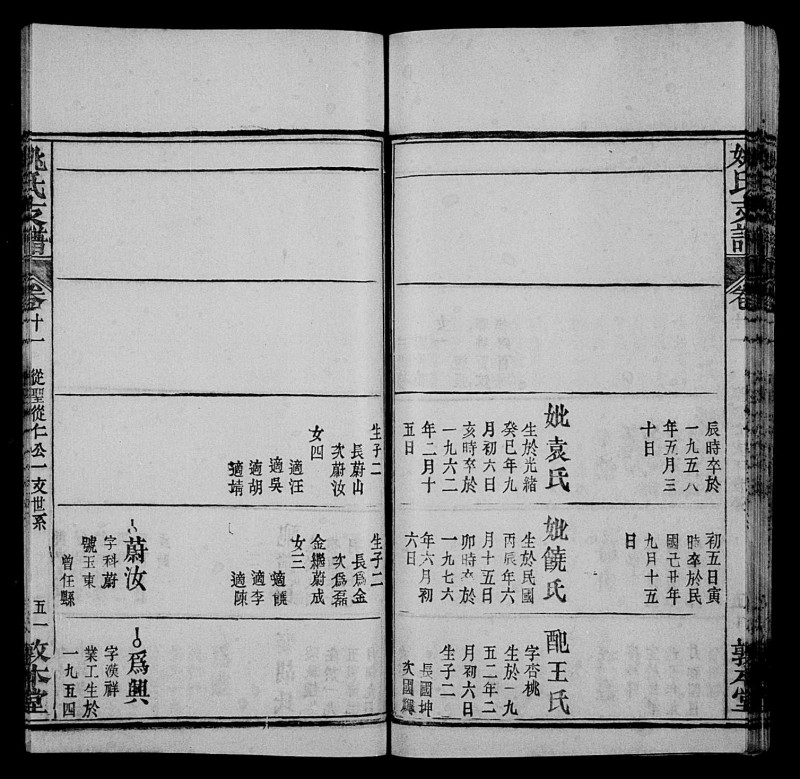 姚氏支譜
辰時卒於
一九五八
年五月三
十日
妣袁氏
生於光緒
癸巳年九
月初六日
亥時卒於
一九六二
年二月十
五日
初五日寅
時卒於民
國己丑年
九月十五
日
妣饒氏
生於民國
丙辰年六
月十五日
卯時卒於
一九七六
年六月初
六日
配王氏
字杏桃
生於一九
五二年二
月初六日
生子二
長國坤
次國輝
敦本堂
生子二
長蔚山
次蔚汝
女四
適汪
適吳
適胡
適靖
生子二
長爲金
次爲磊
金繼蔚成
女三
適饒
適李
適陳
蔚汝
字科蔚
號玉東
曾任縣
爲興
字漢祥
業工生於
一九五四
姚氏支譜
卷十一
從聖從仁公一支世系
五一
敦本堂